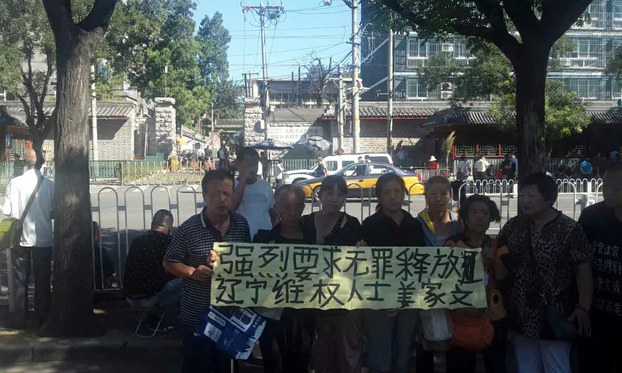 强烈要求无罪释放
辽宁维权人士姜家文